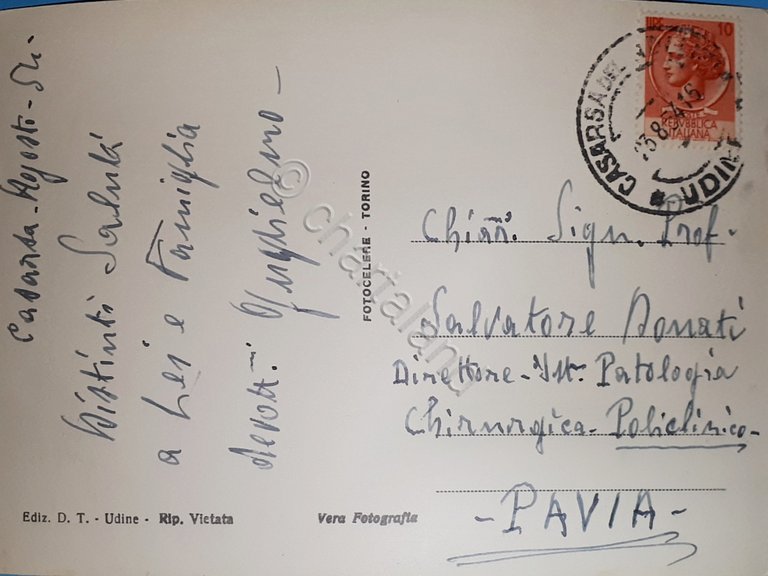 Casarsa - Agosto - 54.
Distinti Saluti
a Lei e Famiglia
devott. Guglielmo -
FOTOCELERE - TORINO
LIRE 10
REPVBBLICA
ITALIANA
CASARSA DEL
UDINE
Chiar. Sign. Prof.
Salvatore Donati
Direttore - Ist. Patologia
Chirurgica - Policlinico -
- PAVIA -
Ediz. D. T. - Udine - Rip. Vietata
Vera Fotografia
© chartaland